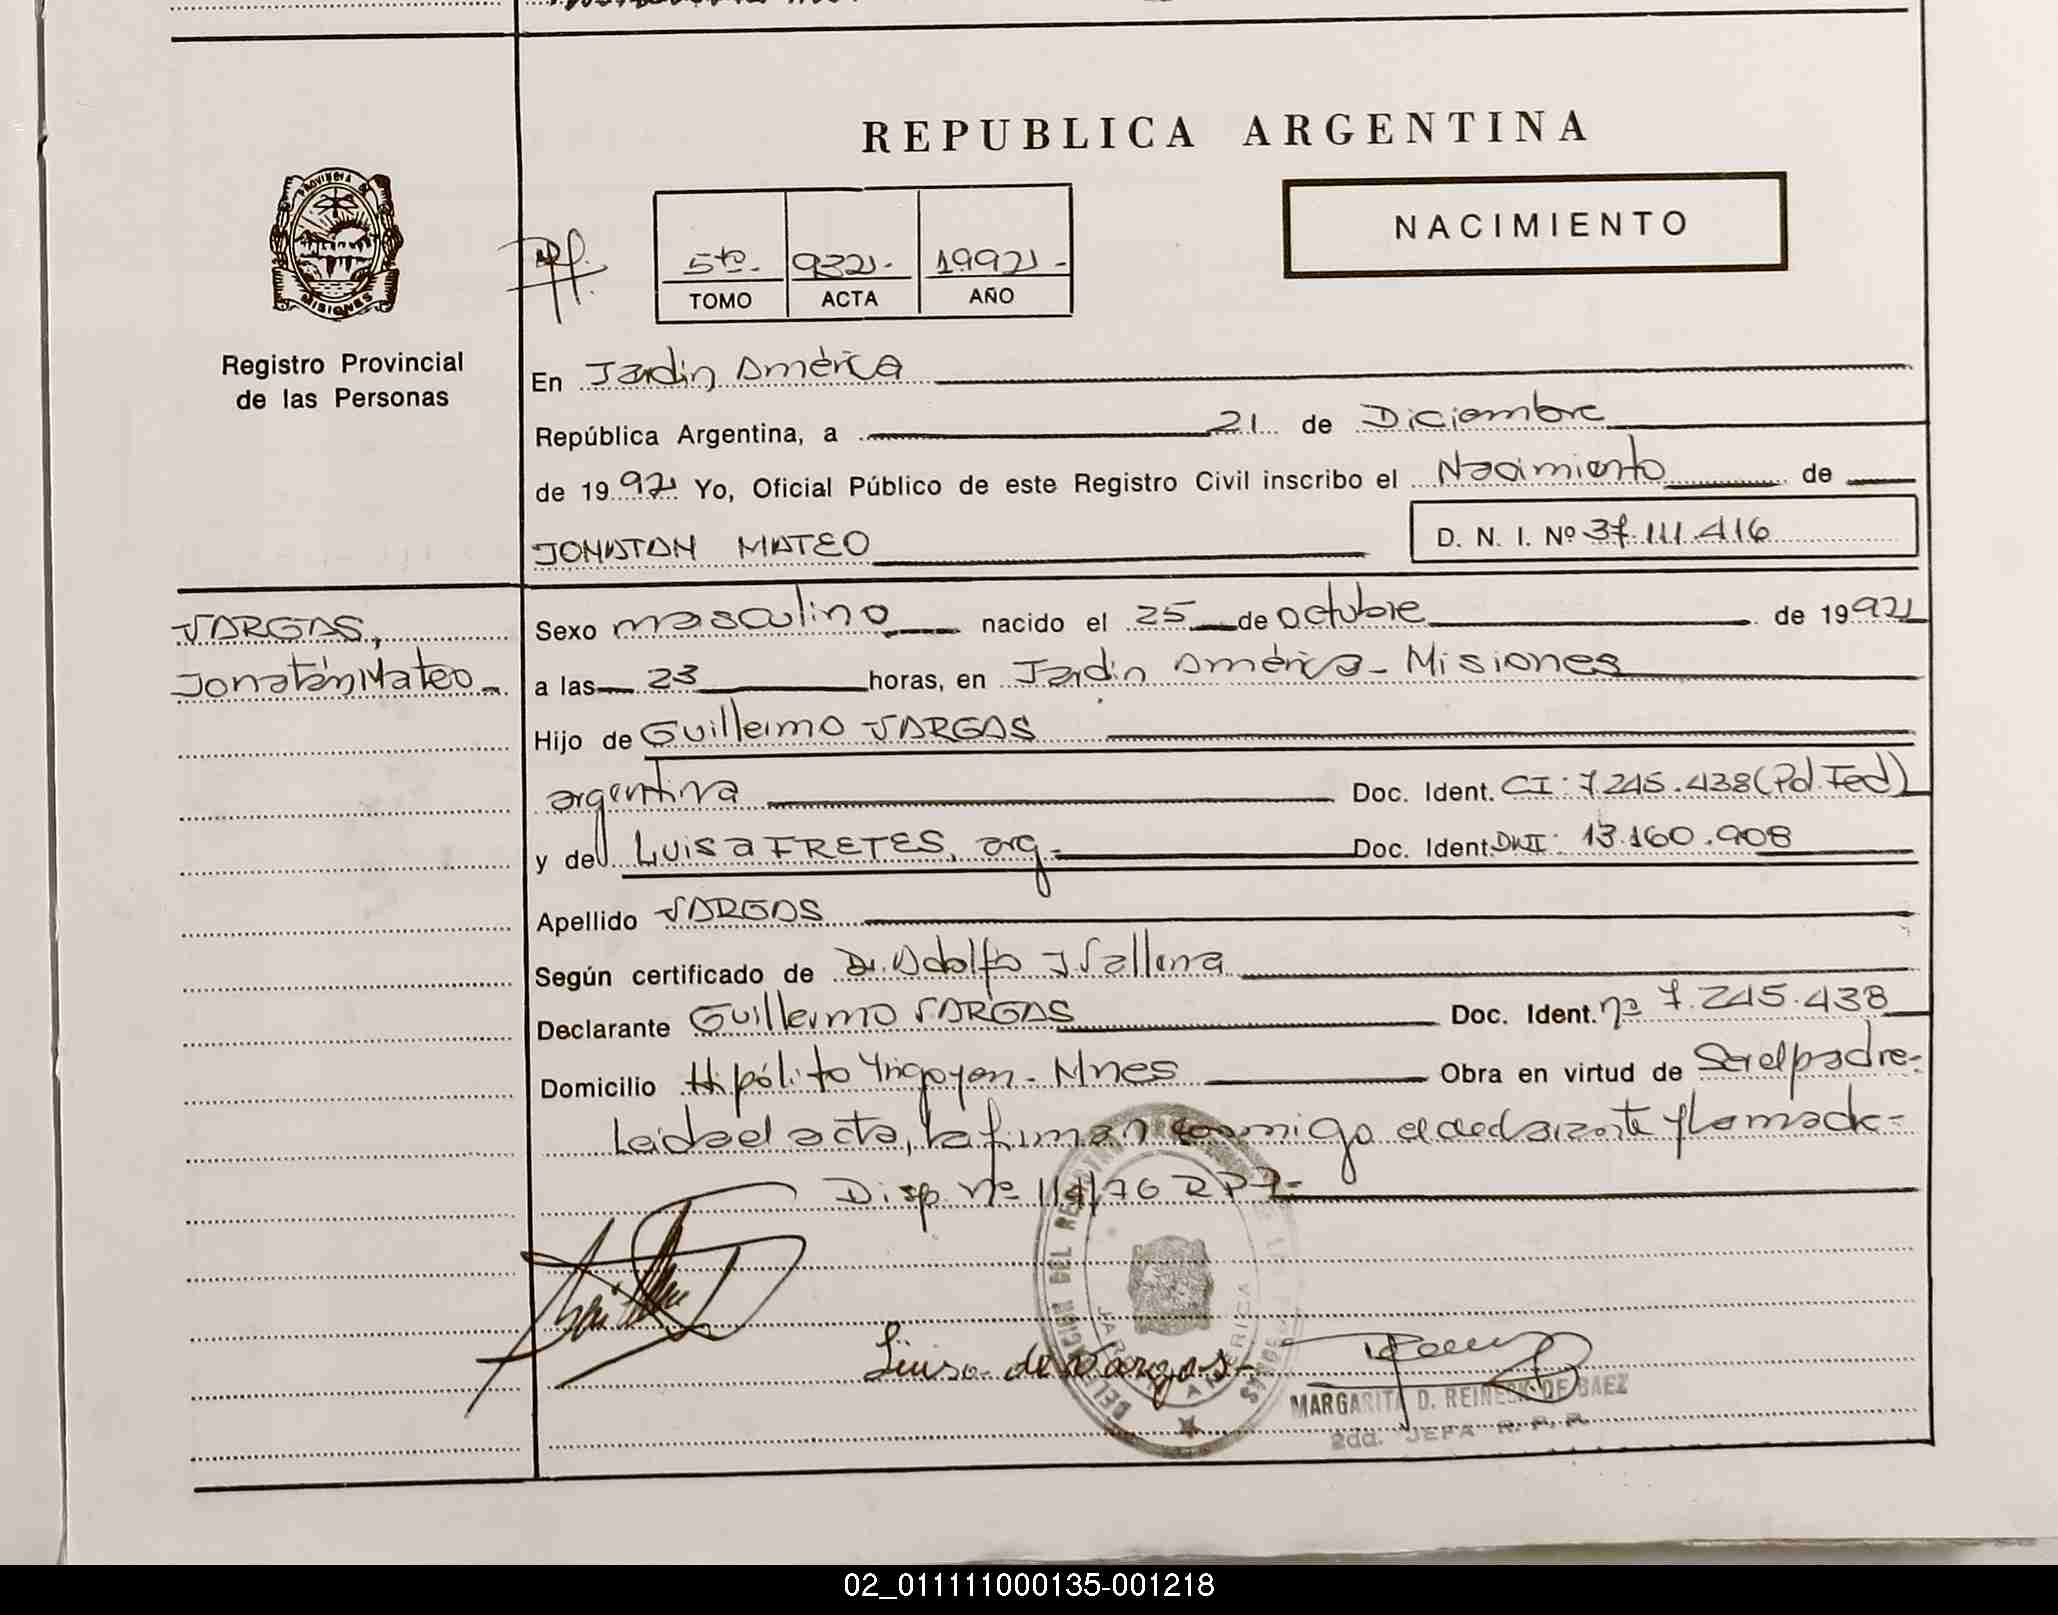 REPUBLICA ARGENTINA
NACIMIENTO
PROVINCIA DE
MISIONES
5to. 932. 1992.
TOMO ACTA AÑO
Registro Provincial
de las Personas
En Jardín América
República Argentina, a 21 de Diciembre
de 1992 Yo, Oficial Público de este Registro Civil inscribo el Nacimiento de
JONATAN MATEO D. N. I. Nº 37.111.416
VARGAS,
Jonatán Mateo
Sexo masculino nacido el 25 de octubre de 1992
a las 23 horas, en Jardín América - Misiones
Hijo de Guillermo VARGAS
argentina Doc. Ident. CI: 7.245.438 (Pol. Fed)
y de Luisa FRETES, arg. Doc. Ident. DNI: 13.160.908
Apellido VARGAS
Según certificado de Dr. Adolfo J.
Declarante Guillermo VARGAS Doc. Ident. nº 7.245.438
Domicilio Hipólito Yrigoyen - Mnes Obra en virtud de Ser el padre-
Leída el acta, la firman conmigo el declarante y la madre-
Disp Nº 1/4/76 RPP-
Luisa de Vargas-
MARGARITA D. REINECK DE BAEZ
2da. JEFA R. P. P.
02_011111000135-001218